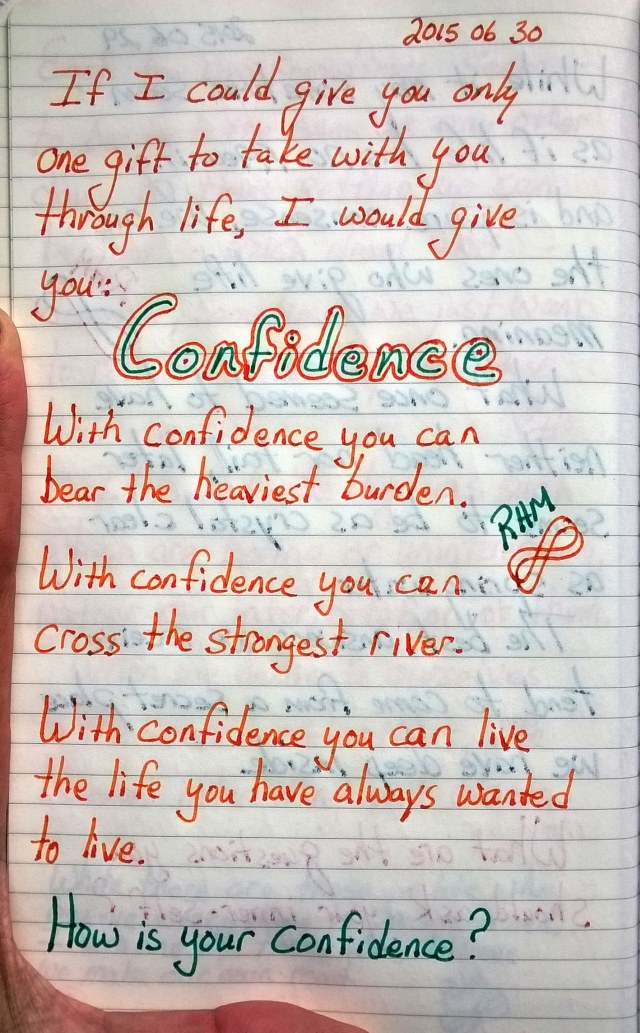 2015 06 30
If I could give you only
one gift to take with you
through life, I would give
you:
Confidence
With confidence you can
bear the heaviest burden.
RHM
With confidence you can
cross the strongest river.
With confidence you can live
the life you have always wanted
to live.
How is your confidence?